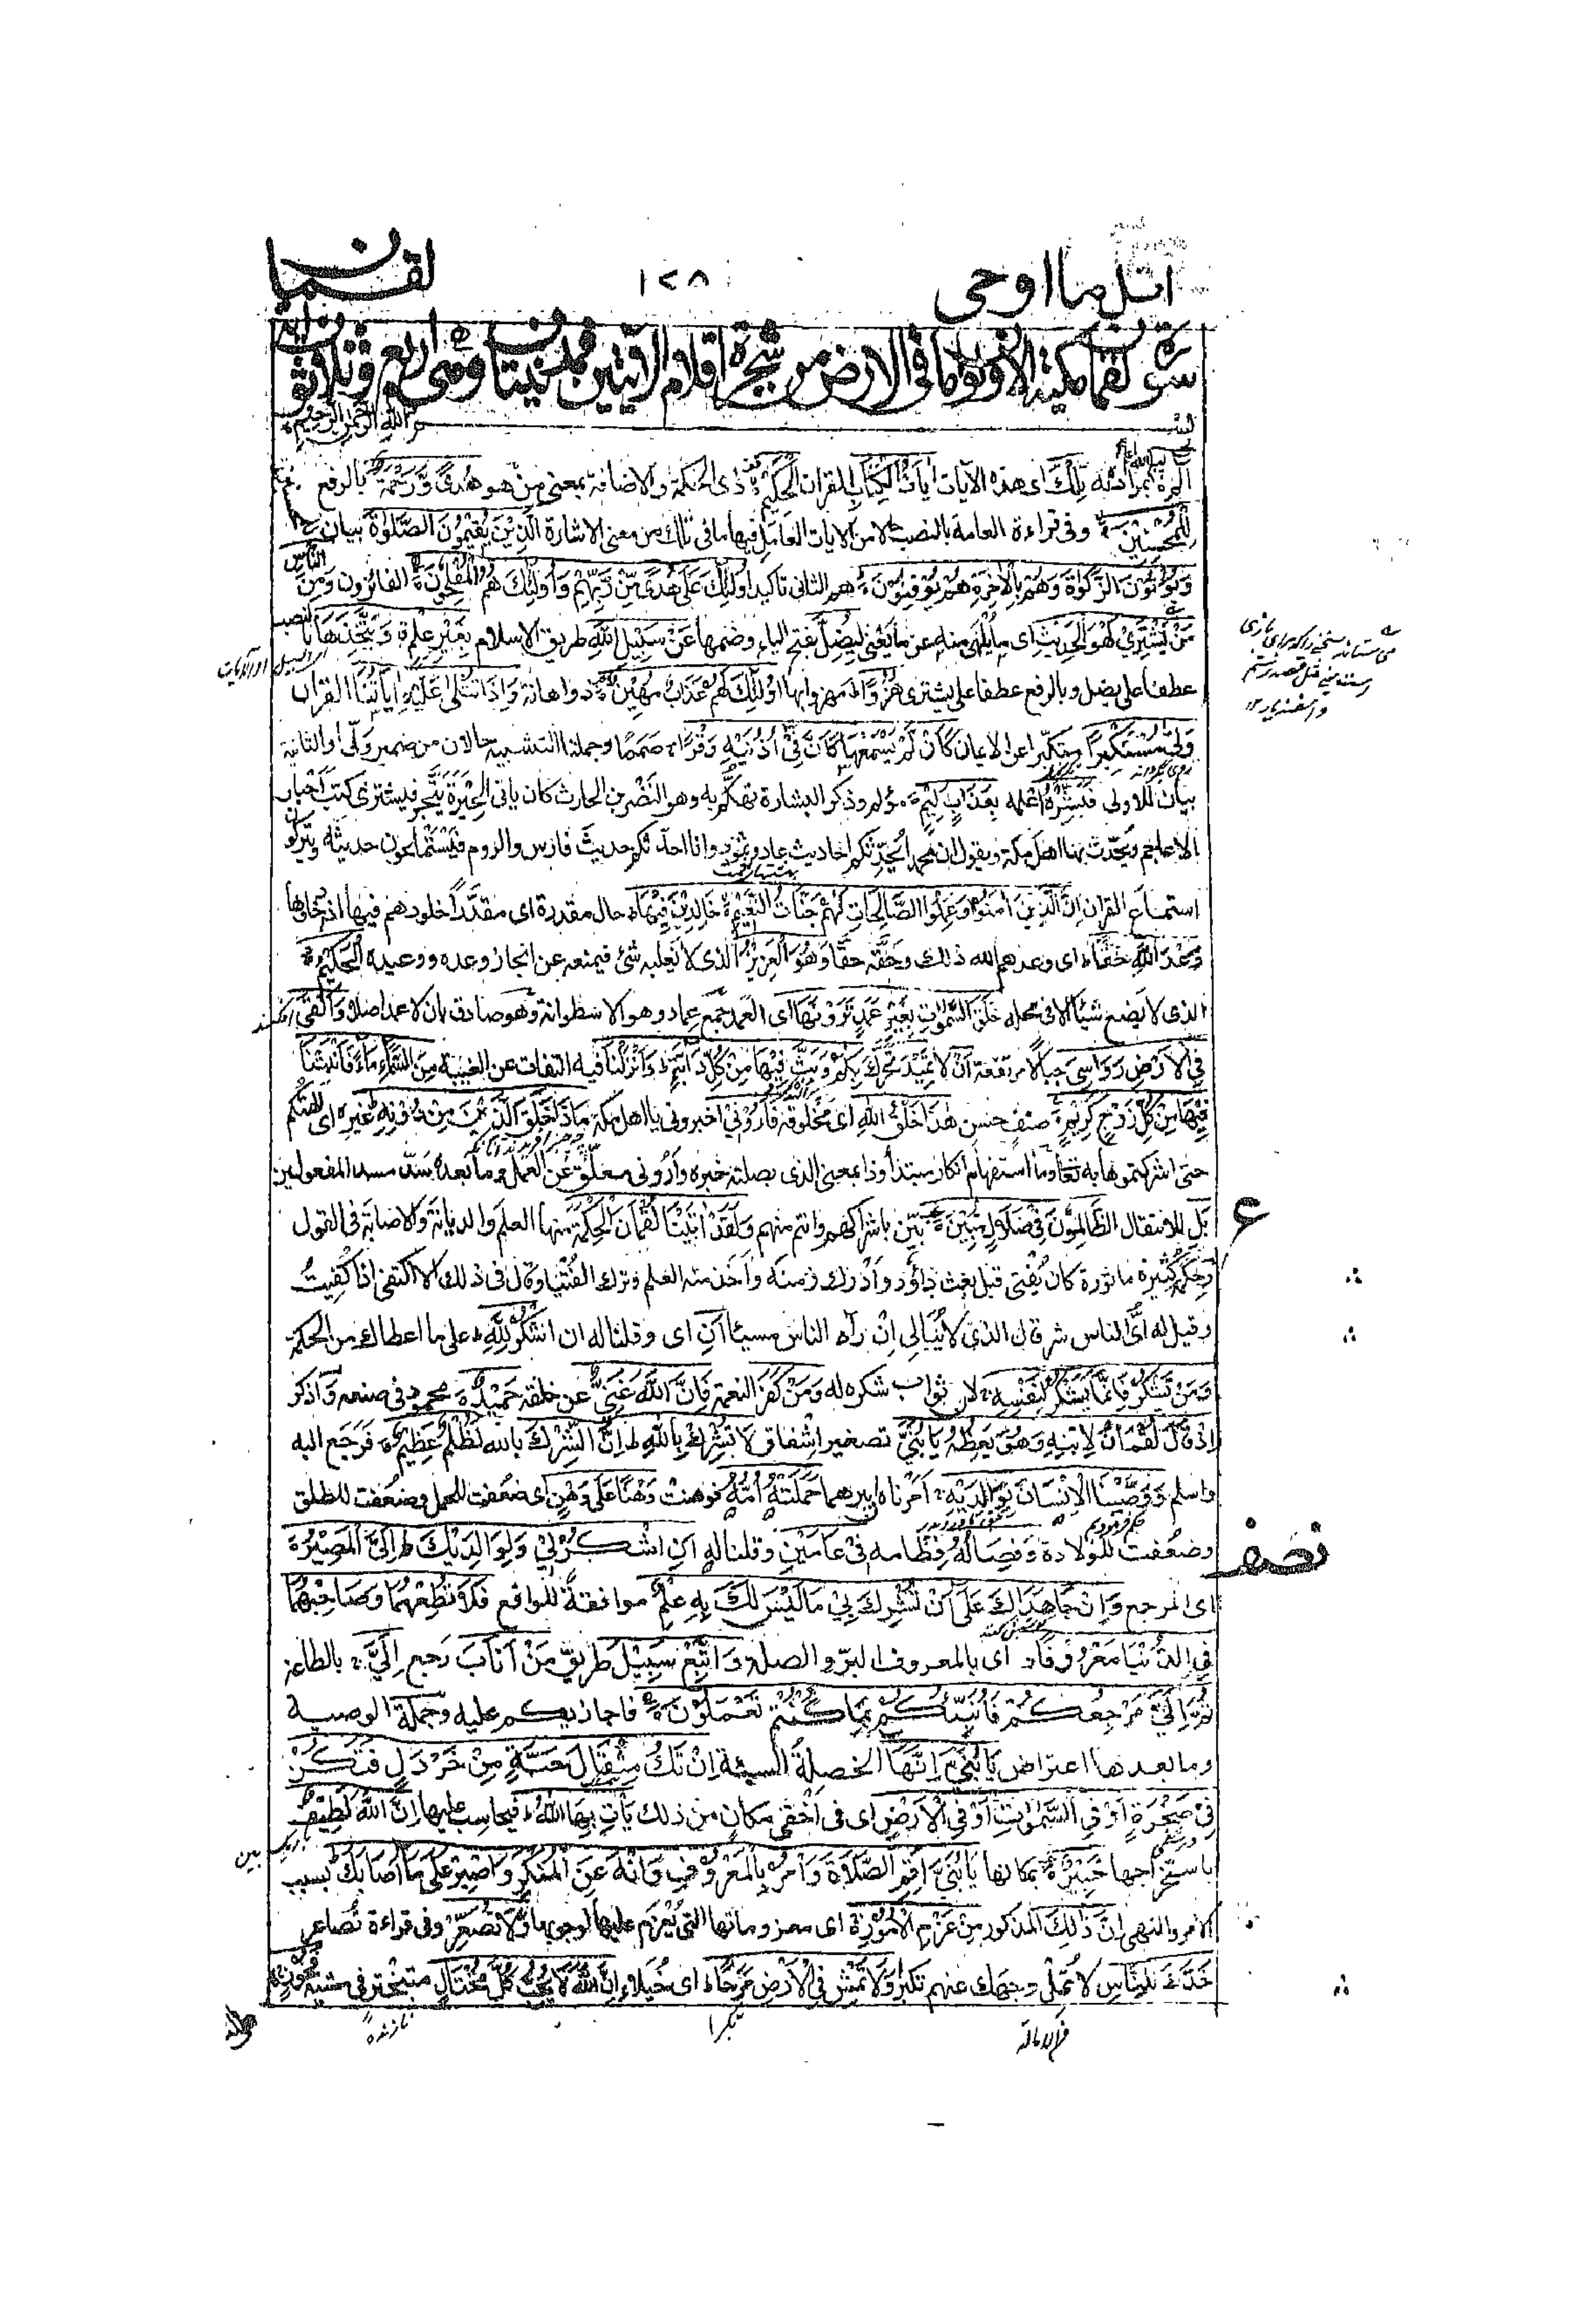 اتل ما اوحی
١٢٨
لقمان
سورة لقمان مكية الا ولو ان ما فى الارض من شجرة اقلام الايتين فمدنيتان وهى اربع وثلاثون اية
بسم الله الرحمن الرحيم
الم الله اعلم بمراده به تِلْكَ اى هذه الآيات اٰيَاتُ الْكِتَابِ القران الْحَكِيْمِ ذى الحكمة والاضافة بمعنى من هو هُدًى وَّرَحْمَةً بالرفع
لِّلْمُحْسِنِيْنَ وفى قراءة العامة بالنصب حالا من الايات العامل فيها ما فى تلك من معنى الاشارة الَّذِيْنَ يُقِيْمُوْنَ الصَّلٰوةَ بيان
وَيُؤْتُوْنَ الزَّكٰوةَ وَهُمْ بِالْاٰخِرَةِ هُمْ يُوْقِنُوْنَ هم الثانى تاكيد اُولٰٓئِكَ عَلٰى هُدًى مِّنْ رَّبِّهِمْ وَاُولٰٓئِكَ هُمُ الْمُفْلِحُوْنَ الفائزون وَمِنَ النَّاسِ
مَنْ يَّشْتَرِيْ لَهْوَ الْحَدِيْثِ اى ما يلهى منه عن ما يعنى لِيُضِلَّ بفتح الياء وضمها عَنْ سَبِيْلِ اللّٰهِ طريق الاسلام بِغَيْرِ عِلْمٍ وَّيَتَّخِذَهَا بالنصب
عطفا على يضل وبالرفع عطفا على يشترى هُزُوًا مهزوا بها اُولٰٓئِكَ لَهُمْ عَذَابٌ مُّهِيْنٌ ذو اهانة وَاِذَا تُتْلٰى عَلَيْهِ اٰيَاتُنَا القران
وَلّٰى مُسْتَكْبِرًا متكبرا عن الايمان كَاَنْ لَّمْ يَسْمَعْهَا كَاَنَّ فِيْٓ اُذُنَيْهِ وَقْرًا صمما وجملتا التشبيه حالان من ضمير ولى او الثانية
بيان للاولى فَبَشِّرْهُ اعلمه بِعَذَابٍ اَلِيْمٍ مؤلم وذكر البشارة تهكم به وهو النضر بن الحارث كان ياتى الحيرة يتجر فيشترى كتب اخبار
الاعاجم ويحدث بها اهل مكة ويقول ان محمدا يحدثكم احاديث عاد وثمود وانا احدثكم حديث فارس والروم فيستملحون حديثه ويتركون
استماع القران اِنَّ الَّذِيْنَ اٰمَنُوْا وَعَمِلُوا الصَّالِحَاتِ لَهُمْ جَنَّاتُ النَّعِيْمِ خَالِدِيْنَ فِيْهَا حال مقدرة اى مقدرا خلودهم فيها اذ دخلوها
وَعْدَ اللّٰهِ حَقًّا اى وعدهم الله ذلك وحقه حقا وَهُوَ الْعَزِيْزُ الذى لا يغلبه شئ فيمنعه عن انجاز وعده ووعيده الْحَكِيْمُ
الذى لا يضع شيئا الا فى محله خَلَقَ السَّمٰوٰتِ بِغَيْرِ عَمَدٍ تَرَوْنَهَا اى العمد جمع عماد وهو الاسطوانة وهو صادق بان لا عمد اصلا وَاَلْقٰى
فِي الْاَرْضِ رَوَاسِيَ جبالا مرتفعة اَنْ لا تَمِيْدَ تتحرك بِكُمْ وَبَثَّ فِيْهَا مِنْ كُلِّ دَآبَّةٍ وَاَنْزَلْنَا فيه التفات عن الغيبة مِنَ السَّمَآءِ مَآءً فَاَنْبَتْنَا
فِيْهَا مِنْ كُلِّ زَوْجٍ كَرِيْمٍ صنف حسن هٰذَا خَلْقُ اللّٰهِ اى مخلوقه فَاَرُوْنِيْ اخبرونى يا اهل مكة مَاذَا خَلَقَ الَّذِيْنَ مِنْ دُوْنِهٖ غيره اى الهتكم
حتى اشركتموها به تعالى وما استفهام انكار مبتدأ وذا بمعنى الذى بصلته خبره وارونى معلق عن العمل وما بعده سد مسد المفعولين
بَلِ للانتقال الظَّالِمُوْنَ فِيْ ضَلٰلٍ مُّبِيْنٍ بين باشراكهم وانتم منهم وَلَقَدْ اٰتَيْنَا لُقْمَانَ الْحِكْمَةَ منها العلم والديانة والاصابة فى القول
وحكمه كثيرة ماثورة كان يفتى قبل بعث داؤد وادرك زمنه واخذ منه العلم وترك الفتيا وقال فى ذلك الا اكتفى اذا كفيت
وقيل له اى الناس شر قال الذى لا يبالى ان رآه الناس مسيئا اَنِ اى وقلنا له ان اشْكُرْ لِلّٰهِ على ما اعطاك من الحكمة
وَمَنْ يَّشْكُرْ فَاِنَّمَا يَشْكُرُ لِنَفْسِهٖ لان ثواب شكره له وَمَنْ كَفَرَ النعمة فَاِنَّ اللّٰهَ غَنِيٌّ عن خلقه حَمِيْدٌ محمود فى صنعه وَ اذكر
اِذْ قَالَ لُقْمَانُ لِابْنِهٖ وَهُوَ يَعِظُهٗ يَا بُنَيَّ تصغير اشفاق لَا تُشْرِكْ بِاللّٰهِ اِنَّ الشِّرْكَ بالله لَظُلْمٌ عَظِيْمٌ فرجع اليه
واسلم وَوَصَّيْنَا الْاِنْسَانَ بِوَالِدَيْهِ امرناه ان يبرهما حَمَلَتْهُ اُمُّهٗ فوهنت وَهْنًا عَلٰى وَهْنٍ اى ضعفت للحمل وضعفت للطلق
وضعفت للولادة وَفِصَالُهٗ فطامه فِيْ عَامَيْنِ وقلنا له اَنِ اشْكُرْ لِيْ وَلِوَالِدَيْكَ اِلَيَّ الْمَصِيْرُ
نصف
اى المرجع وَاِنْ جَاهَدَاكَ عَلٰى اَنْ تُشْرِكَ بِيْ مَا لَيْسَ لَكَ بِهٖ عِلْمٌ موافقة للواقع فَلَا تُطِعْهُمَا وَصَاحِبْهُمَا
فِي الدُّنْيَا مَعْرُوْفًا اى بالمعروف البر والصلة وَاتَّبِعْ سَبِيْلَ طريق مَنْ اَنَابَ رجع اِلَيَّ بالطاعة
ثُمَّ اِلَيَّ مَرْجِعُكُمْ فَاُنَبِّئُكُمْ بِمَا كُنْتُمْ تَعْمَلُوْنَ فاجازيكم عليه وجملة الوصية
وما بعدها اعتراض يَا بُنَيَّ اِنَّهَا الخصلة السيئة اِنْ تَكُ مِثْقَالَ حَبَّةٍ مِنْ خَرْدَلٍ فَتَكُنْ
فِيْ صَخْرَةٍ اَوْ فِي السَّمٰوٰتِ اَوْ فِي الْاَرْضِ اى فى اخفى مكان من ذلك يَاْتِ بِهَا اللّٰهُ فيحاسب عليها اِنَّ اللّٰهَ لَطِيْفٌ
باستخراجها خَبِيْرٌ بمكانها يَا بُنَيَّ اَقِمِ الصَّلَاةَ وَاْمُرْ بِالْمَعْرُوْفِ وَانْهَ عَنِ الْمُنْكَرِ وَاصْبِرْ عَلٰى مَا اَصَابَكَ بسبب
الامر والنهى اِنَّ ذٰلِكَ المذكور مِنْ عَزْمِ الْاُمُوْرِ اى معزوماتها التى يعزم عليها لوجوبها وَلَا تُصَعِّرْ وفى قراءة تصاعر
خَدَّكَ لِلنَّاسِ لا تمل وجهك عنهم تكبرا وَلَا تَمْشِ فِي الْاَرْضِ مَرَحًا اى خيلاء اِنَّ اللّٰهَ لَا يُحِبُّ كُلَّ مُخْتَالٍ متبختر فى مشيه فَخُوْرٍ
تکبرا